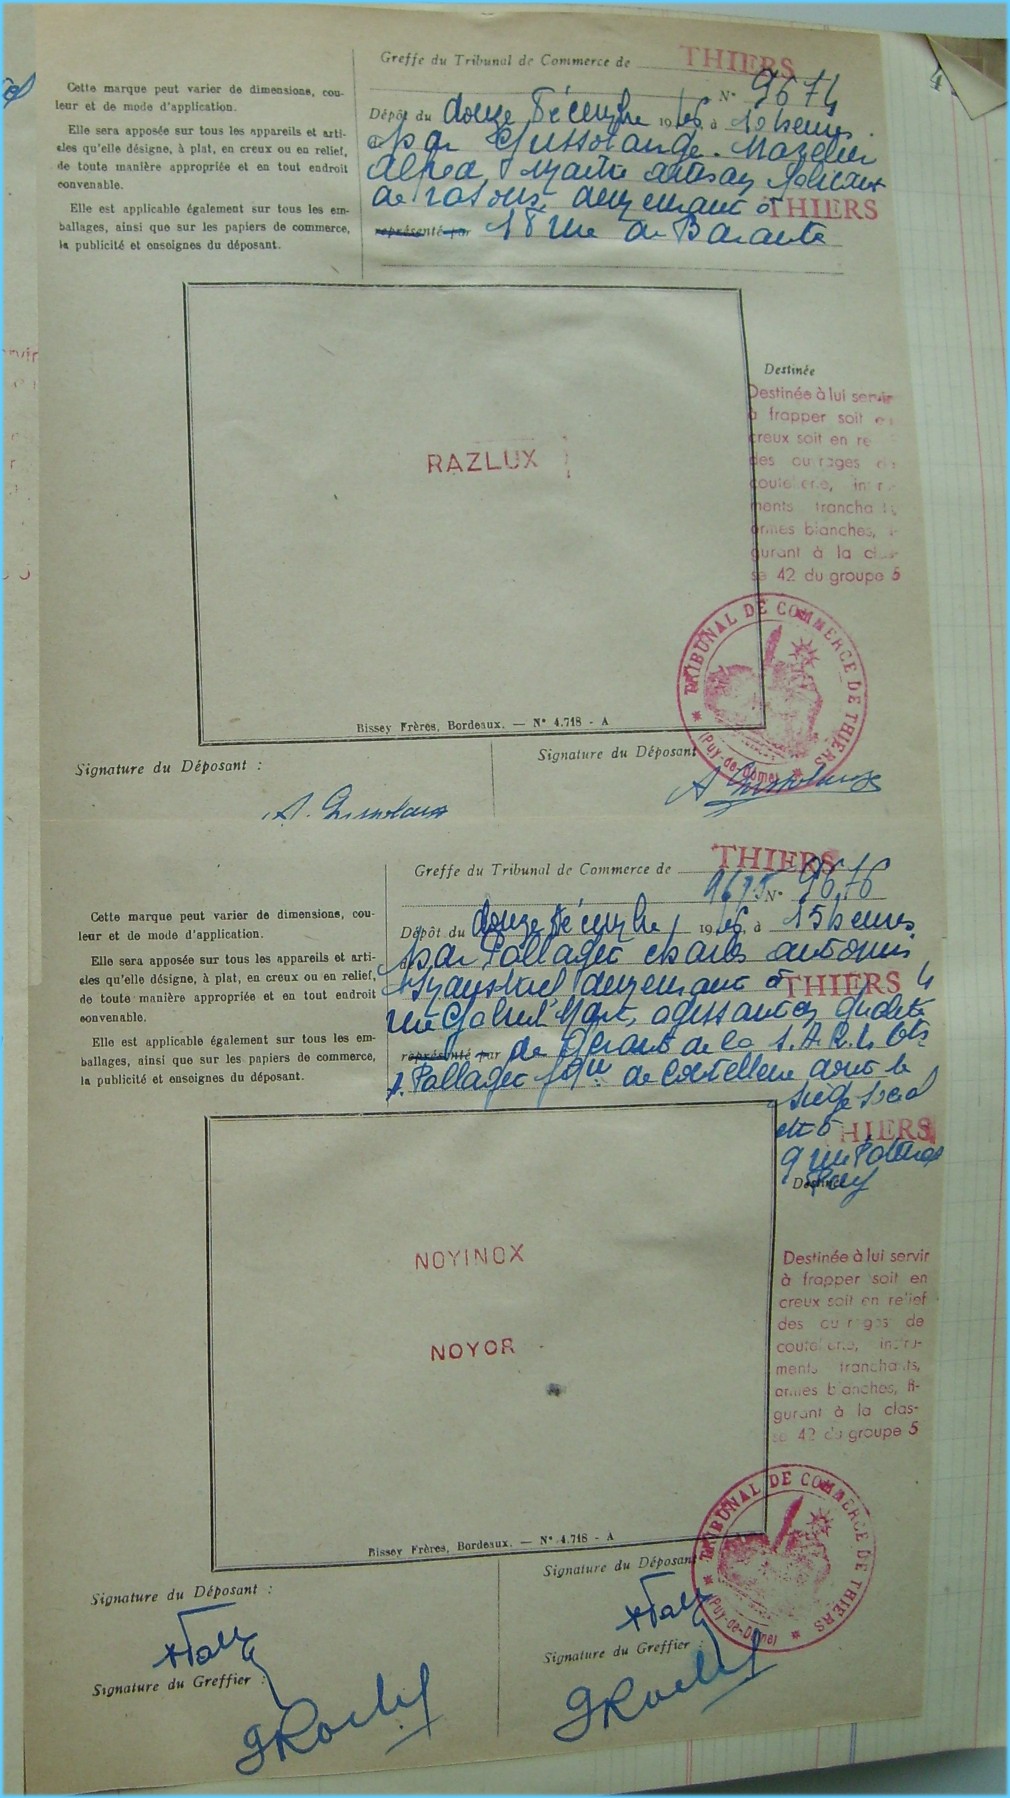 Greffe du Tribunal de Commerce de THIERS
N° 9674
Cette marque peut varier de dimensions, cou-
leur et de mode d'application.
Elle sera apposée sur tous les appareils et arti-
cles qu'elle désigne, à plat, en creux ou en relief,
de toute manière appropriée et en tout endroit
convenable.
Elle est applicable également sur tous les em-
ballages, ainsi que sur les papiers de commerce,
la publicité et enseignes du déposant.
Dépôt du douze Décembre 1946 à 10 heures
par Mazelier
Alfred, Maître artisan
de rasoirs, demeurant à THIERS
représenté par 18 rue de Barante
Destinée
Destinée à lui servir
à frapper soit en
creux soit en re
des ouvrages de
coutellerie, instru-
ments tranchants,
armes blanches, fi-
gurant à la clas-
se 42 du groupe 5
RAZLUX
TRIBUNAL DE COMMERCE DE THIERS
(Puy-de-Dôme)
Bissey Frères, Bordeaux. — N° 4.718 - A
Signature du Déposant :
Signature du Déposant
Greffe du Tribunal de Commerce de THIERS
9675 N° 9676
Cette marque peut varier de dimensions, cou-
leur et de mode d'application.
Elle sera apposée sur tous les appareils et arti-
cles qu'elle désigne, à plat, en creux ou en relief,
de toute manière appropriée et en tout endroit
convenable.
Elle est applicable également sur tous les em-
ballages, ainsi que sur les papiers de commerce,
la publicité et enseignes du déposant.
Dépôt du douze Décembre 1946 à 15 heures
par charles antonin
Industriel demeurant à THIERS 4
rue Gabriel Marc, agissant en qualité
représenté par de Gérant de la S.A.R.L. Ets
de Coutellerie dont le
siège social
est à THIERS
9 rue
Destinée
Destinée à lui servir
à frapper soit en
creux soit en relief
des ouvrages de
coutellerie, instru-
ments tranchants,
armes blanches, fi-
gurant à la clas-
se 42 du groupe 5
NOYINOX
NOYOR
TRIBUNAL DE COMMERCE DE THIERS
(Puy-de-Dôme)
Bissey Frères, Bordeaux. — N° 4.718 - A
Signature du Déposant :
Signature du Déposant
Signature du Greffier :
Signature du Greffier :